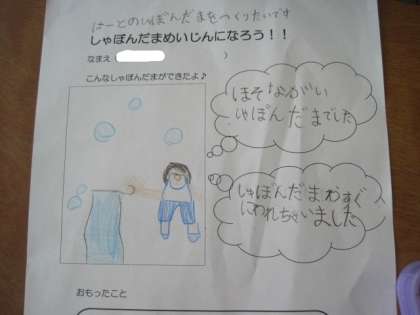 はーとのしゃぼんだまをつくりたいです
しゃぼんだまめいじんになろう！！
なまえ
)
こんなしゃぼんだまができたよ♪
ほそながい
しゃぼんだまでした
しゃぼんだまわすぐ
にわれちゃいました
おもったこと